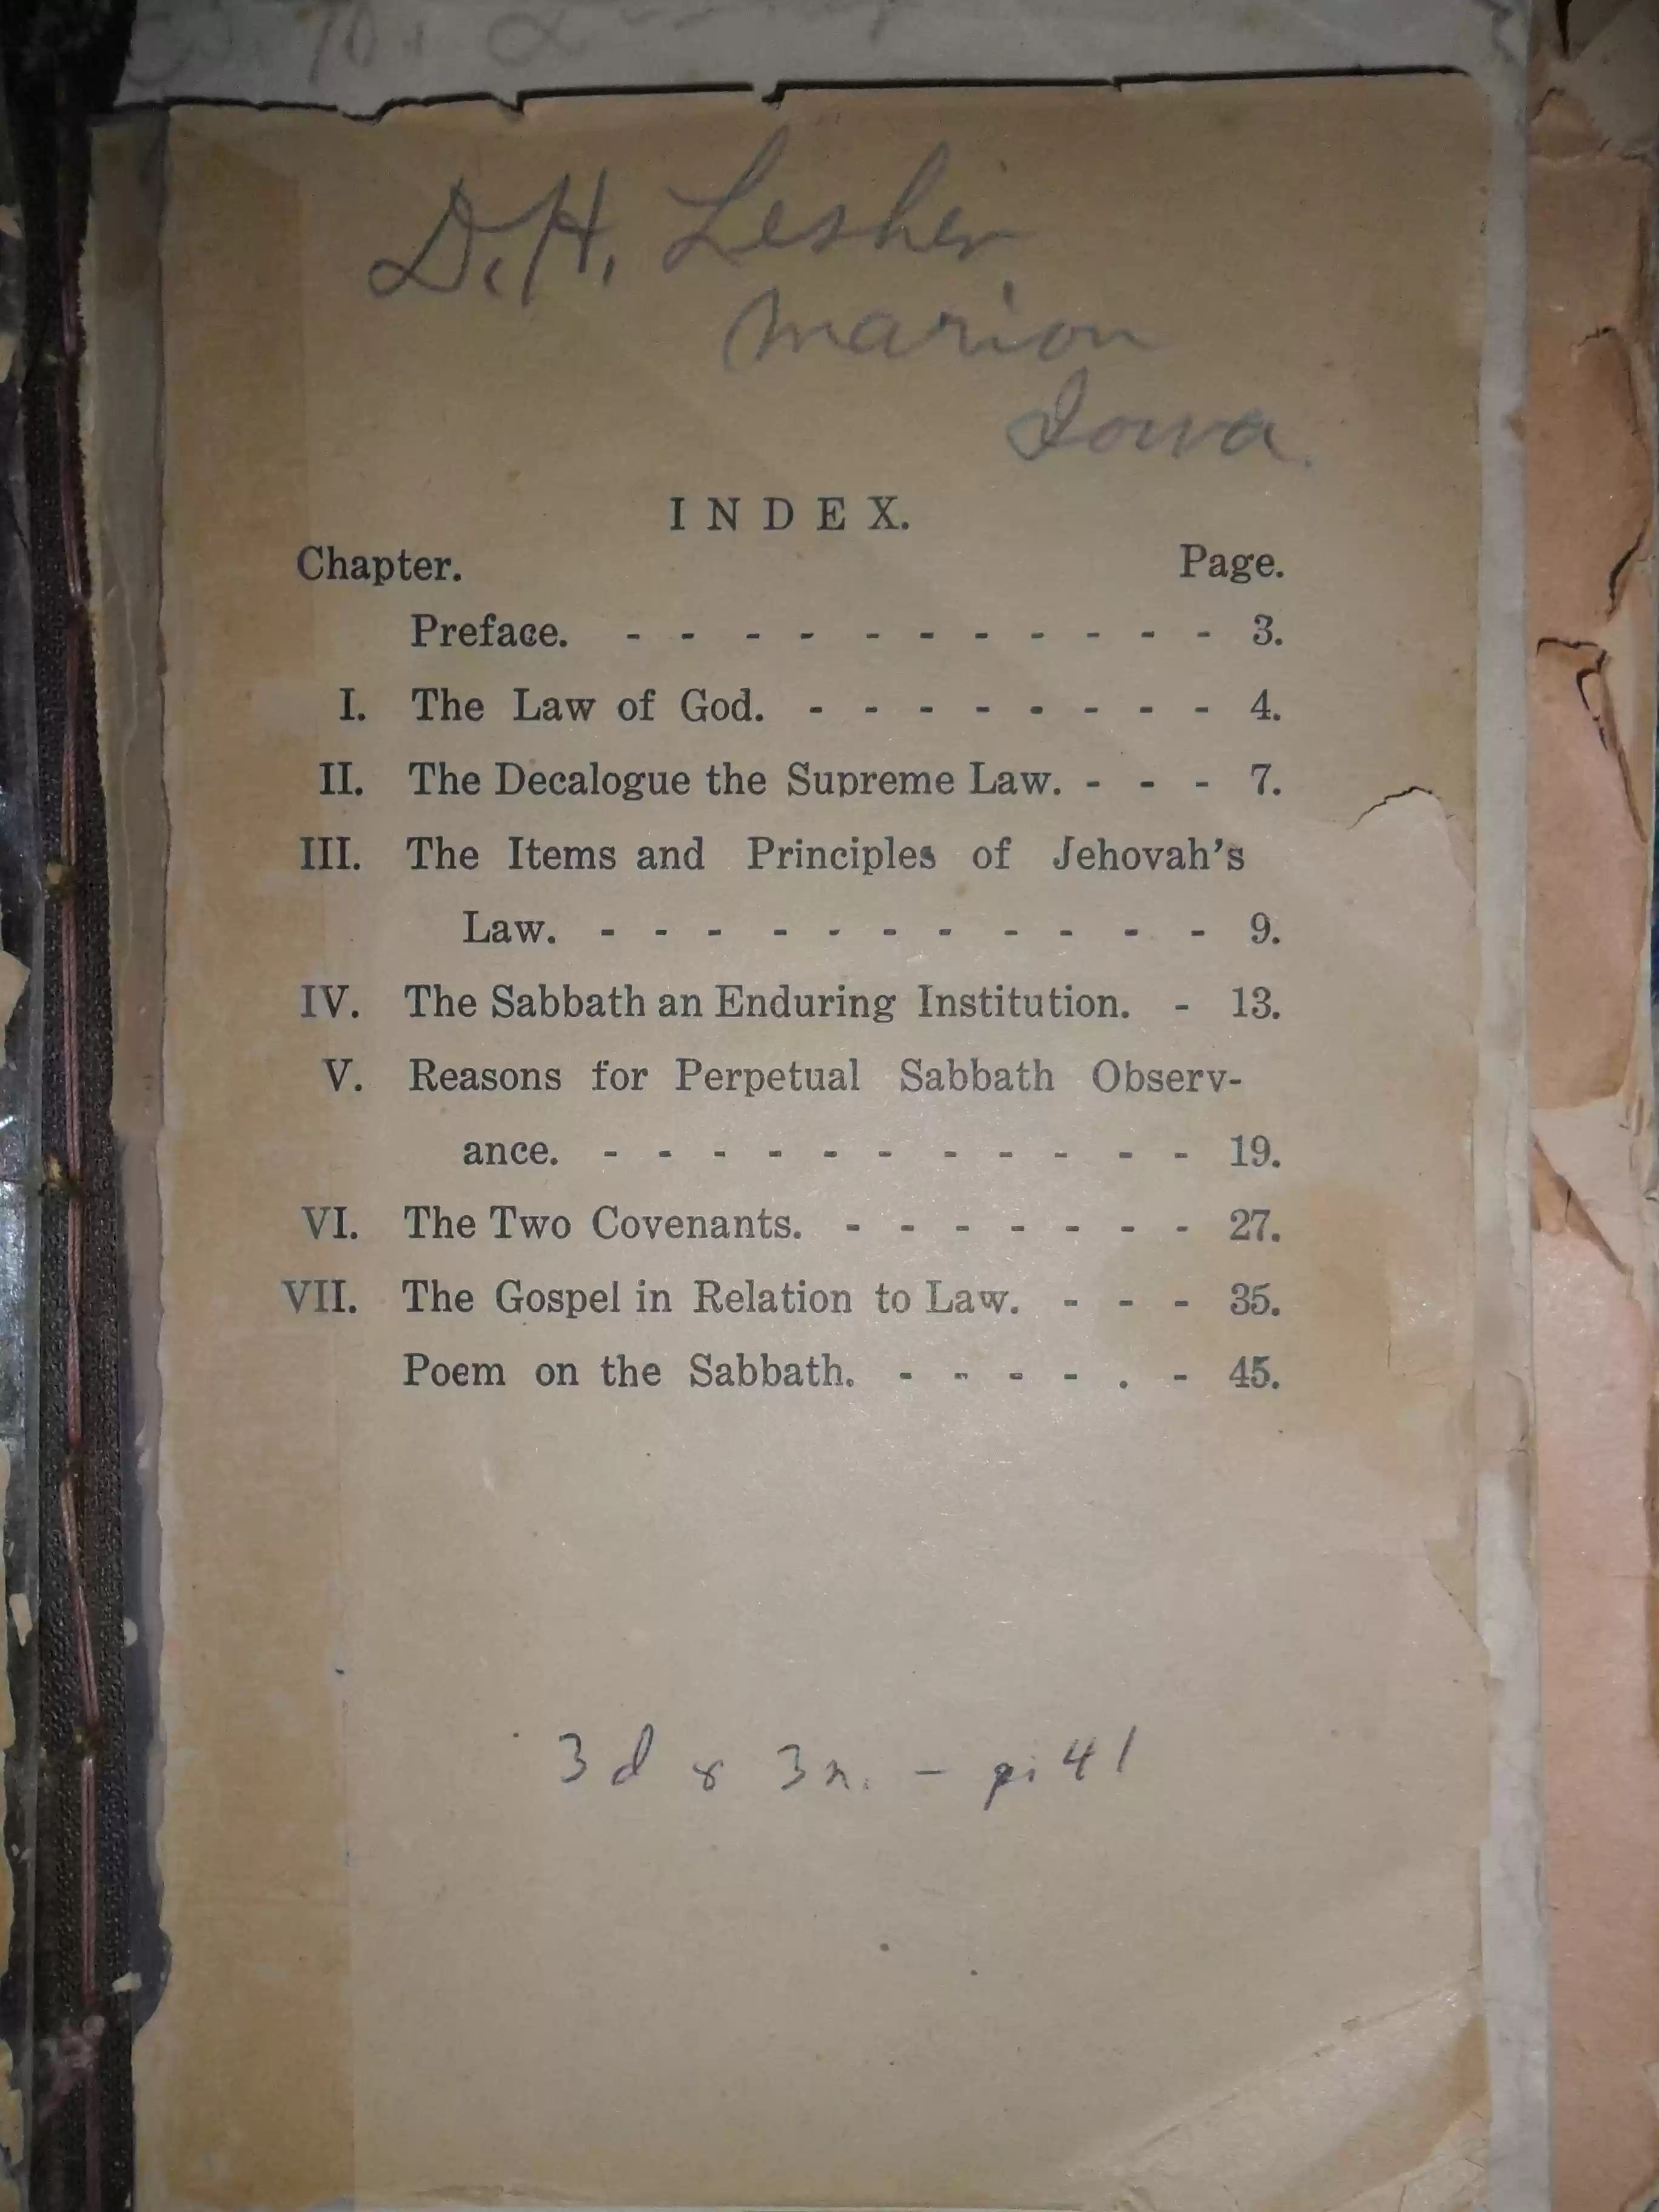 D. H. Lesher
Marion
Iowa.
INDEX.
Chapter. Page.
Preface. - - - - - - - - - - - 3.
I. The Law of God. - - - - - - - - 4.
II. The Decalogue the Supreme Law. - - - 7.
III. The Items and Principles of Jehovah's
Law. - - - - - - - - - - - 9.
IV. The Sabbath an Enduring Institution. - 13.
V. Reasons for Perpetual Sabbath Observ-
ance. - - - - - - - - - - 19.
VI. The Two Covenants. - - - - - - - 27.
VII. The Gospel in Relation to Law. - - - 35.
Poem on the Sabbath. - - - - . - 45.
3d & 3n. - 41